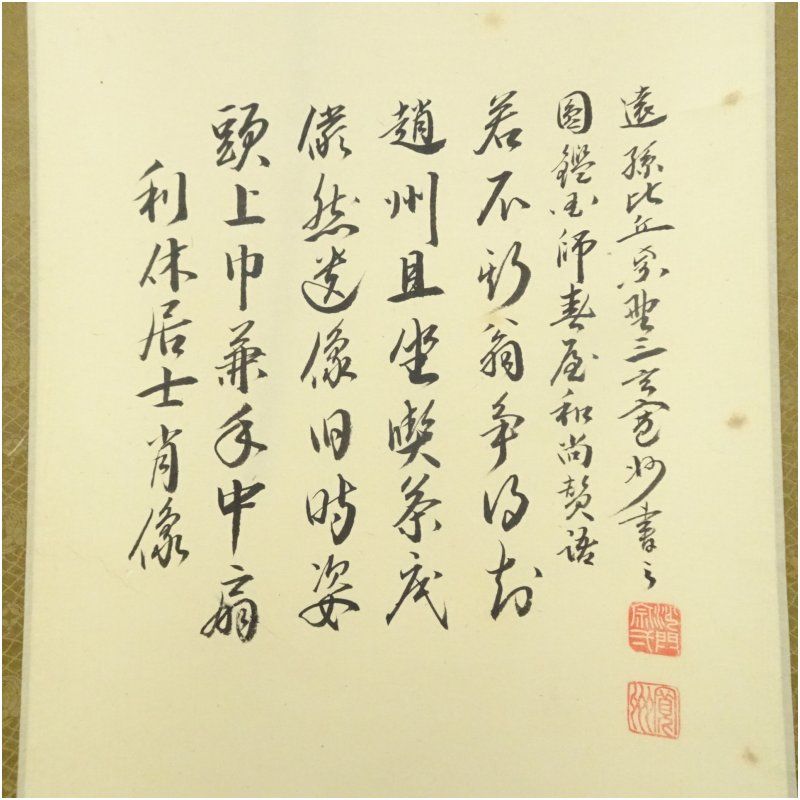 利休居士肖像
頭上巾兼手中扇
儼然遺像旧時姿
趙州且坐喫茶底
若不斯翁争得知
圓鑑国師春屋和尚賛語
遠孫比丘宗三玄寛州書之
沙門宗弍
寛州